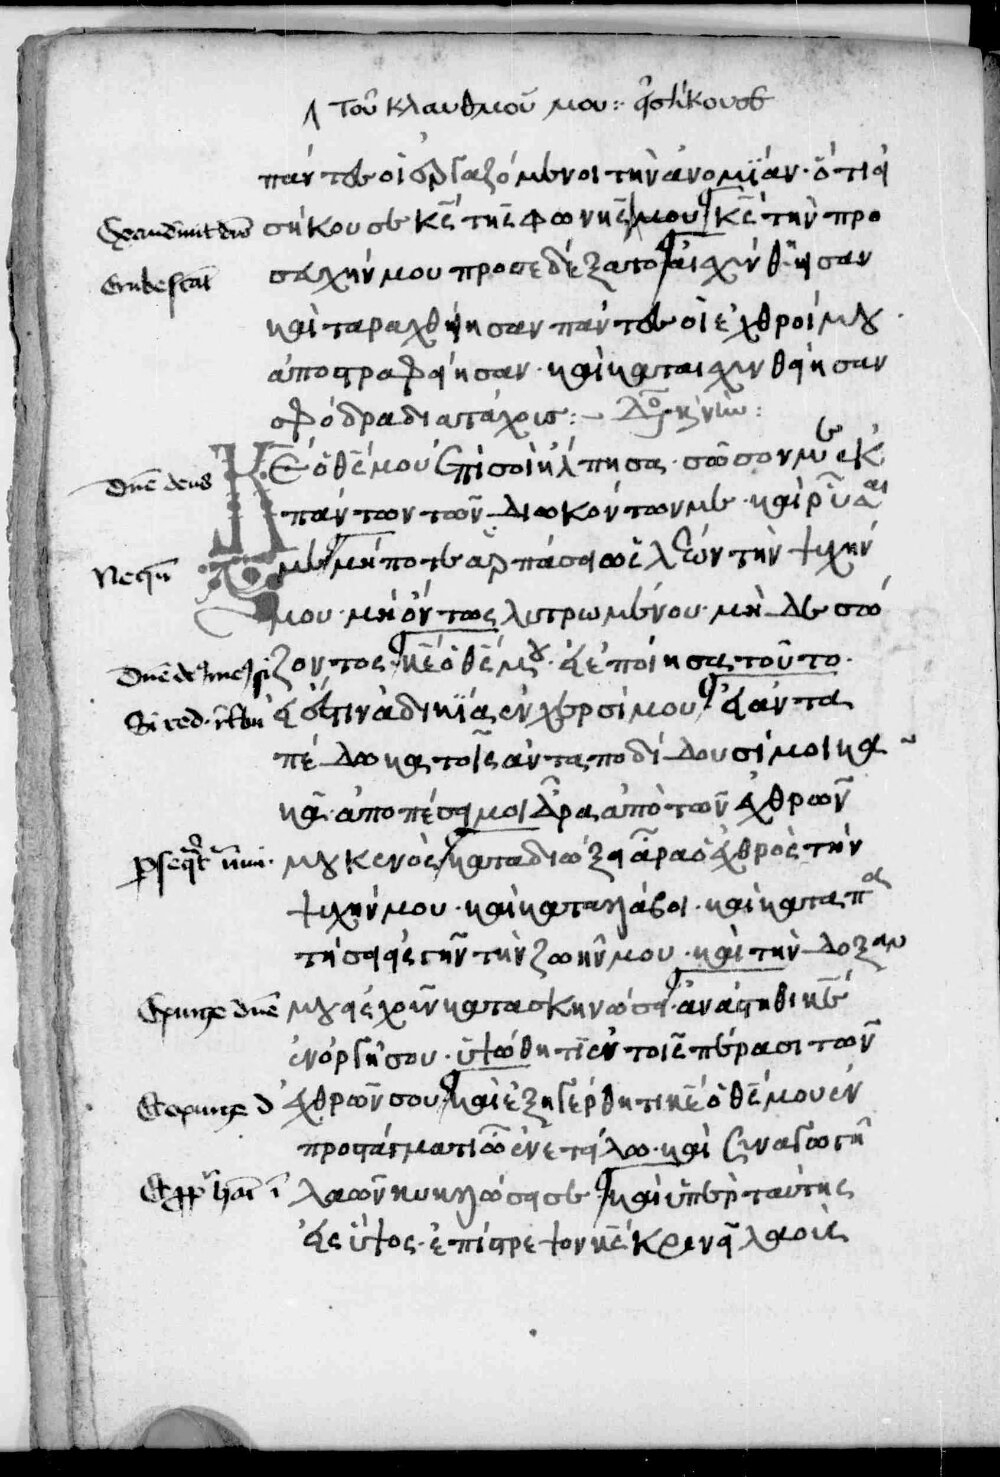 τοῦ κλαυθμοῦ μου: εἰσήκουσε
πάντες οἱ ἐργαζόμενοι τὴν ἀνομϊάν· ὅτι εἰ
Exaudivit dns σήκουσε κς τῆς φωνῆς μου κς τὴν προ
Erubescant σευχήν μου προσεδέξατο αἰσχυνθείησαν
καὶ ταραχθείησαν πάντες οἱ ἐχθροί μου·
ἀποστραφείησαν· καὶ καταισχυνθείησαν
σφόδρα διατάχους:
Dne deus Κε ὁ θς μου ἐπὶ σοὶ ἤλπησα· σῶσον με ἐκ
πάντων τῶν διωκόντων με· καὶ ρῦσαι
Nequn με μήποτε ἁρπάσει ὡς λέων τὴν ψυχήν
μου· μὴ ὄντως λυτρωμένου· μὴ δε σώ
Dne de me si ζοντος· κε ὁ θς μου· εἰ ἐποίησα τοῦτο·
Si red. rtbu εἰ ἔστιν ἀδικϊά ἐν χερσί μου εἰ ἀντα
πέδωκα τοῖς ἀνταποδίδουσί μοι κα
κά· ἀποπέσαιμοι ἄρα ἀπὸ τῶν ἐχθρῶν
Psequat inim. μου κενὸς καταδιώξαι ἄρα ὁ ἐχθρὸς τήν
ψυχήν μου· καὶ καταλάβοι· καὶ καταπα
τήσαι εἰς γῆν τὴν ζωήν μου· καὶ τὴν δόξαν
Exurge dne μου εἰς χοῦν κατασκηνώσαι· ἀνάστηθι κε
ἐν ὀργῇ σου· ὑψώθητι ἐν τοῖς πέρασι τῶν
Et exurge d ἐχθρῶν σου καὶ ἐξηγέρθητι κε ὁ θς μου ἐν
προστάγματι ᾧ ἐνετείλω· καὶ συναγωγὴ
λαῶν κυκλώσει σε καὶ ὑπὲρ ταύτης
εἰς ὕψος· ἐπίστρεψον κς κρινεῖ λαούς